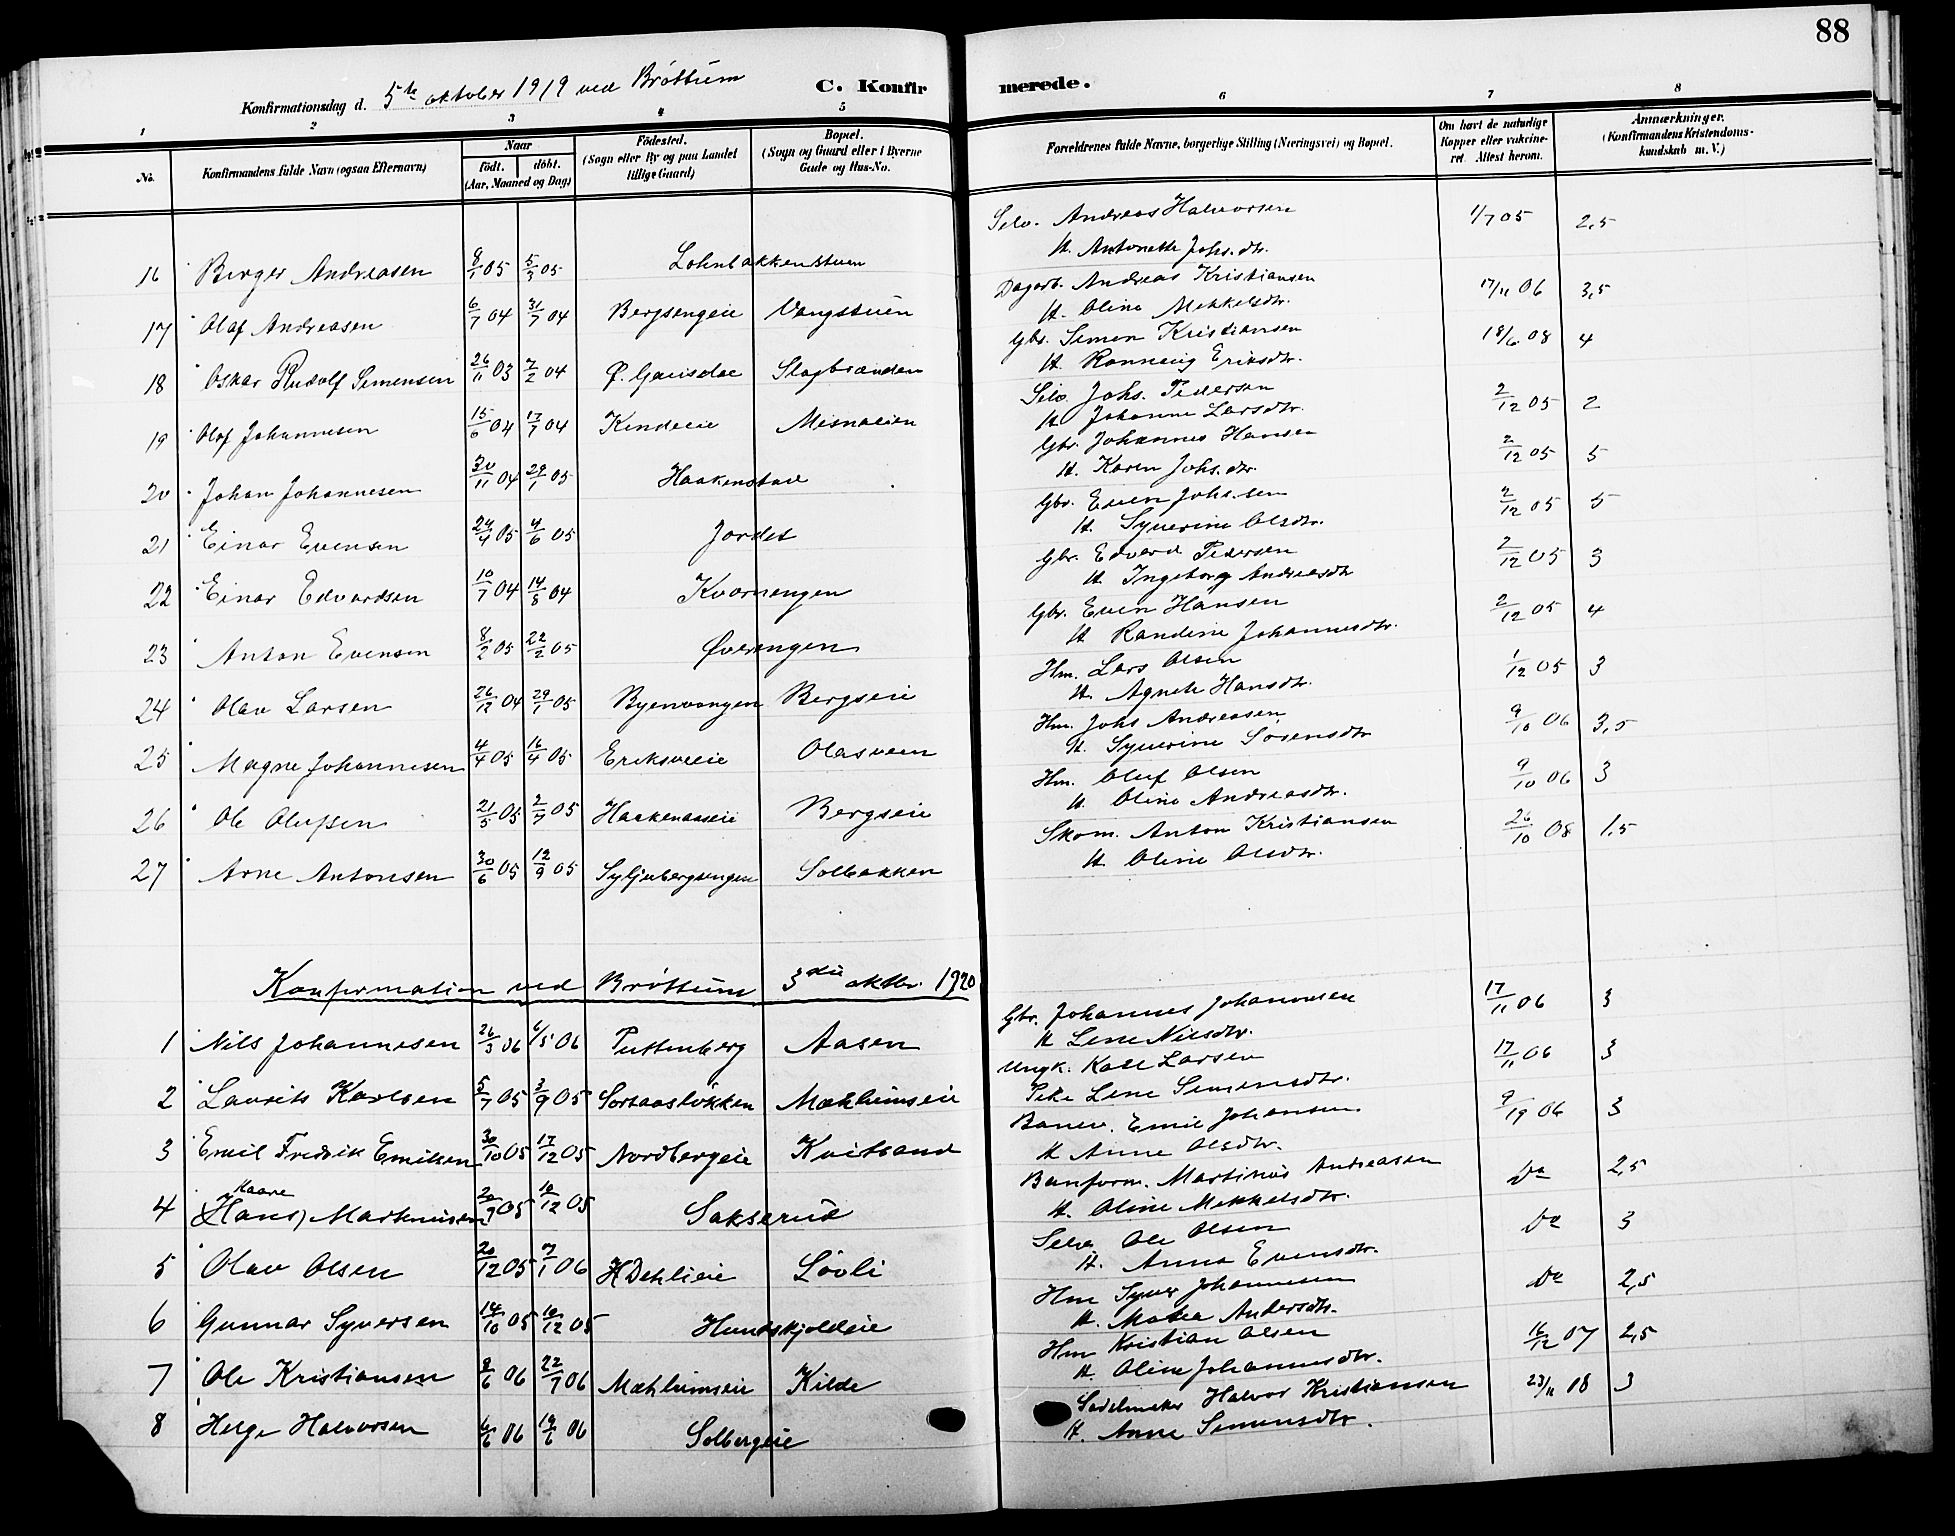 88
Konfirmationsdag d. 5te oktober 1919 ved Brøttum C. Konfirmerede.
1 2 3 4 5 6 7 8
No.
Konfirmandens fulde Navn (ogsaa Efternavn)
Naar
födt. döbt.
(Aar, Maaned og Dag)
Födested.
(Sogn eller By og paa Landet
tillige Gaard)
Bopæl.
(Sogn og Gaard eller i Byerne
Gade og Hus-No.
Forældrenes fulde Navne, borgerlige Stilling (Næringsvei) og Bopæl.
Om havt de naturlige
Kopper eller vakcine-
ret. Attest herom.
Anmærkninger.
(Konfirmandens Kristendoms-
kundskab m. V.)
16 Birger Andreasen 8/1 05 5/3 05 Lohnbakkenstuen Selv. Andreas Halvorsen 1/7 05 2,5
H. Antonette Johs.dtr.
17 Olaf Andreasen 6/7 04 31/7 04 Bergsengeie Vangstuen Dagarb. Andreas Kristiansen 17/11 06 3,5
H. Oline Mekkelsdtr.
18 Oskar Rudolf Simensen 26/11 03 7/2 04 Ø. Gausdal Slagbranden Gbr. Simen Kristiansen 18/6 08 4
H. Ronnaug Eriksdtr.
19 Olaf Johannesen 15/6 04 17/7 04 Kindleie Mesnalien Selv. Johs. Pedersen 2/12 05 2
H. Johanne Larsdtr.
20 Johan Johannesen 30/11 04 29/1 05 Haakenstad Gbr. Johannes Hansen 2/12 05 5
H. Karen Johs.dtr.
21 Einar Evensen 24/4 05 4/6 05 Jordet Gbr. Even Johs.sen 2/12 05 5
H. Syverine Olsdtr.
22 Einar Edvardsen 10/7 04 14/8 04 Kvarnengen Gbr. Edvard Pedersen 2/12 05 3
H. Ingeborg Andreasdtr
23 Anton Evensen 8/2 05 22/2 05 Øverengen Gbr. Even Hansen 2/12 05 4
H. Randine Johannesdtr.
24 Olav Larsen 26/12 04 29/1 05 Byenvangen Bergseie Hm. Lars Olsen 1/12 05 3
H. Agnete Hansdtr.
25 Magne Johannesen 4/4 05 16/4 05 Eriksveeie Olasveen Hm. Johs Andreasen 9/10 06 3,5
H. Syverine Sørensdtr
26 Ole Olufsen 21/5 05 2/7 05 Haakenaaseie Bergseie Hm. Oluf Olsen 9/10 06 3
H. Oline Andreasdtr.
27 Arne Antonsen 30/6 05 12/9 05 Syljubergsengen Solbakken Skom. Anton Kristiansen 26/10 08 1,5
H. Oline Olsdtr.
Konfirmation ved Brøttum 3die oktbr. 1920
1 Nils Johannesen 26/3 06 6/5 06 Puttenberg Aasen Gbr. Johannes Johannesen 17/11 06 3
H Lene Nilsdtr.
2 Laurits Karlsen 5/7 05 3/9 05 Søraasløkken Mæhlumseie Ungk. Karl Larsen 17/11 06 3
Pike Lene Simensdtr.
3 Emil Fredrik Emilsen 30/10 05 17/12 05 Nordbergeie Kvitsand Banev. Emil Johansen 9/19 06 3
H Anne Olsdtr.
Kaare
4 (Hans) Martinusen 20/9 05 10/12 05 Sakserud Banform. Martinus Andreasen Do 2,5
H. Oline Mekkelsdtr.
5 Olav Olsen 20/12 05 7/1 06 H Dehlieie Løvli Selv Ole Olsen Do 3
H. Anna Evensdtr.
6 Gunnar Syversen 14/10 05 10/12 05 Hundskjoldeie Hm Syver Johannesen Do 2,5
H. Matea Andersdtr.
7 Ole Kristiansen 9/6 06 22/7 06 Mæhlumseie Kilde Hm Kristian Olsen 16/12 07 2,5
H. Oline Johannesdtr.
8 Helge Halvorsen 6/6 06 19/6 06 Solbergeie Sadelmaker Halvor Kristiansen 23/11 18 3
H. Anne Simensdtr.